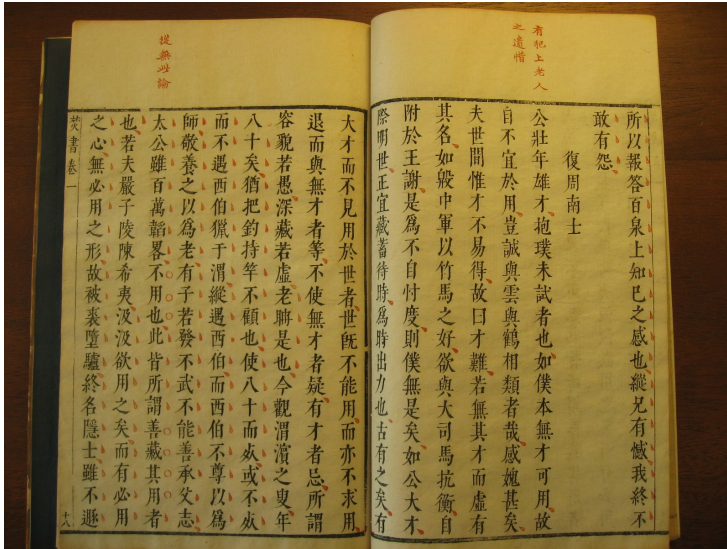 有圯上老人
之遺
所以報答百泉上知巳之感也縱兄有憾我終不
敢有怨
復周南士
公壯年雄才抱璞未試者也如僕本無才可用故
自不宜於用豈誠與雲與鶴相類者哉感媿甚矣
夫世間惟才不易得故曰才難若無其才而虛有
其名如殷中軍以竹馬之好欲與大司馬抗衡自
附於王謝是爲不自忖度則僕無是矣如公大才
際明世正宜藏蓄待時爲時出力也古有之矣有
從無此論
大才而不見用於世者世旣不能用而亦不求用
退而與無才者等不使無才者疑有才者忌所謂
容貌若愚深藏若虛老聃是也今觀渭濱之叟年
八十矣猶把釣持竿不顧也使八十而死或不死
而不遇西伯獵于渭縱遇西伯而西伯不尊以爲
師敬養之以爲老有子若發不武不能善承父志
太公雖百萬韜畧不用也此皆所謂善藏其用者
也若夫嚴子陵陳希夷汲汲欲用之矣而有必用
之心無必用之形故被裘墮驢終名隱士雖不遯
焚書卷一
十八